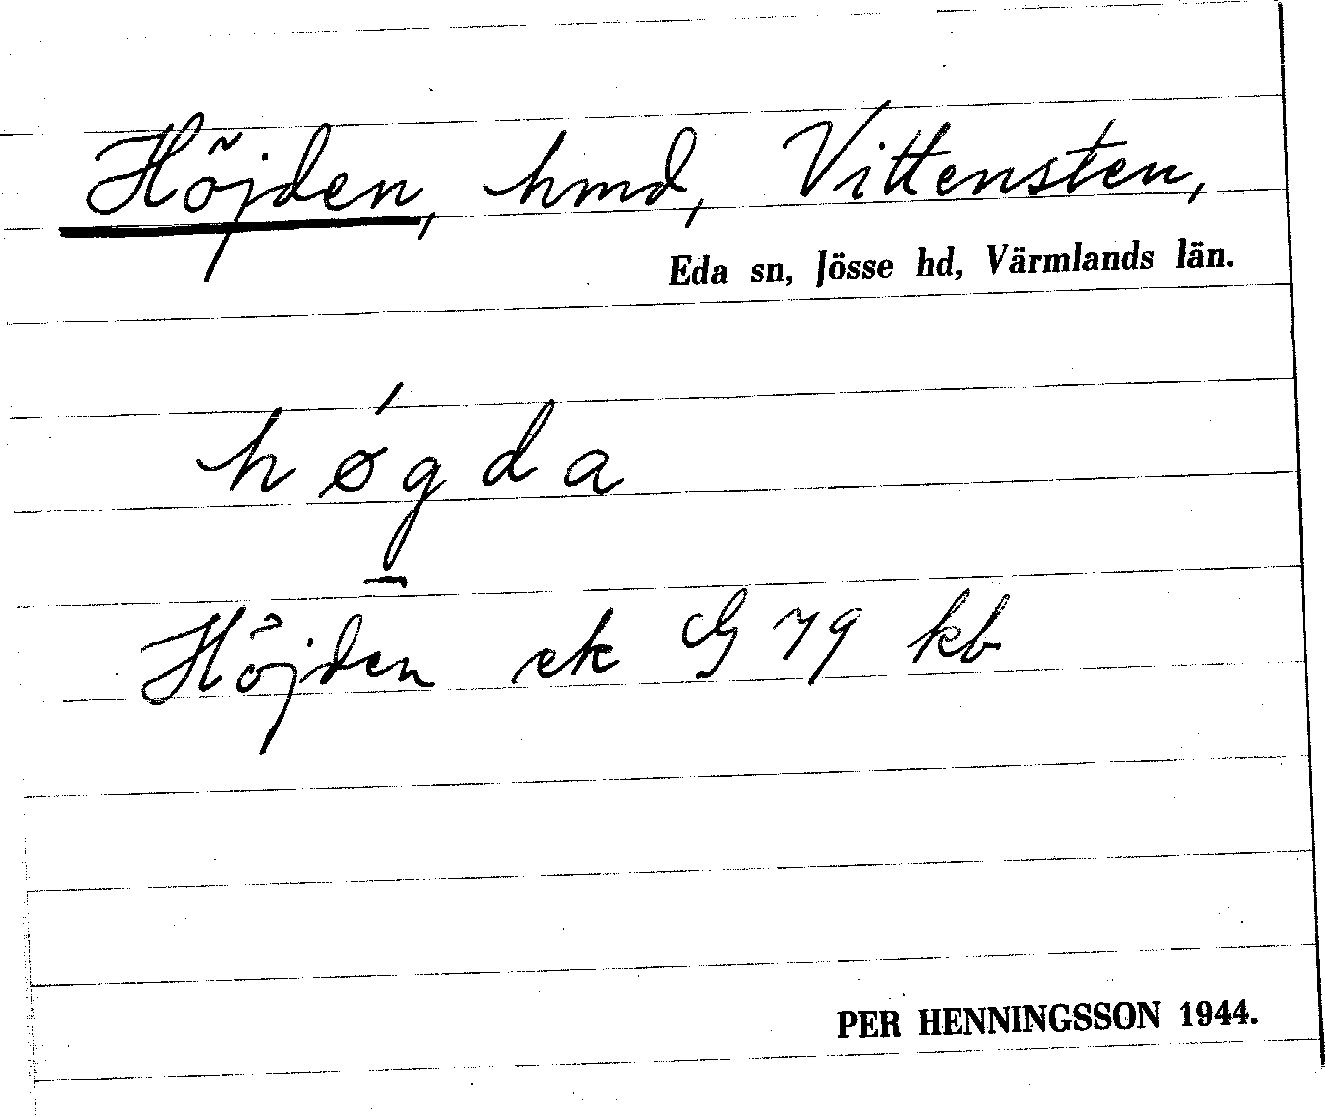 Höjden, hmd, Vittensten,
Eda sn, Jösse hd, Värmlands län.
høgda
Höjden ek G 79 kb
PER HENNINGSSON 1944.